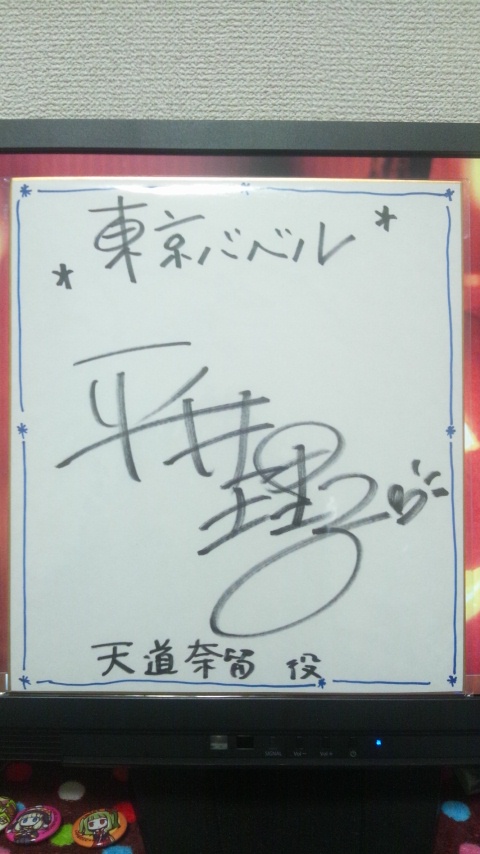 東京バベル
平井理子
天道奈留 役